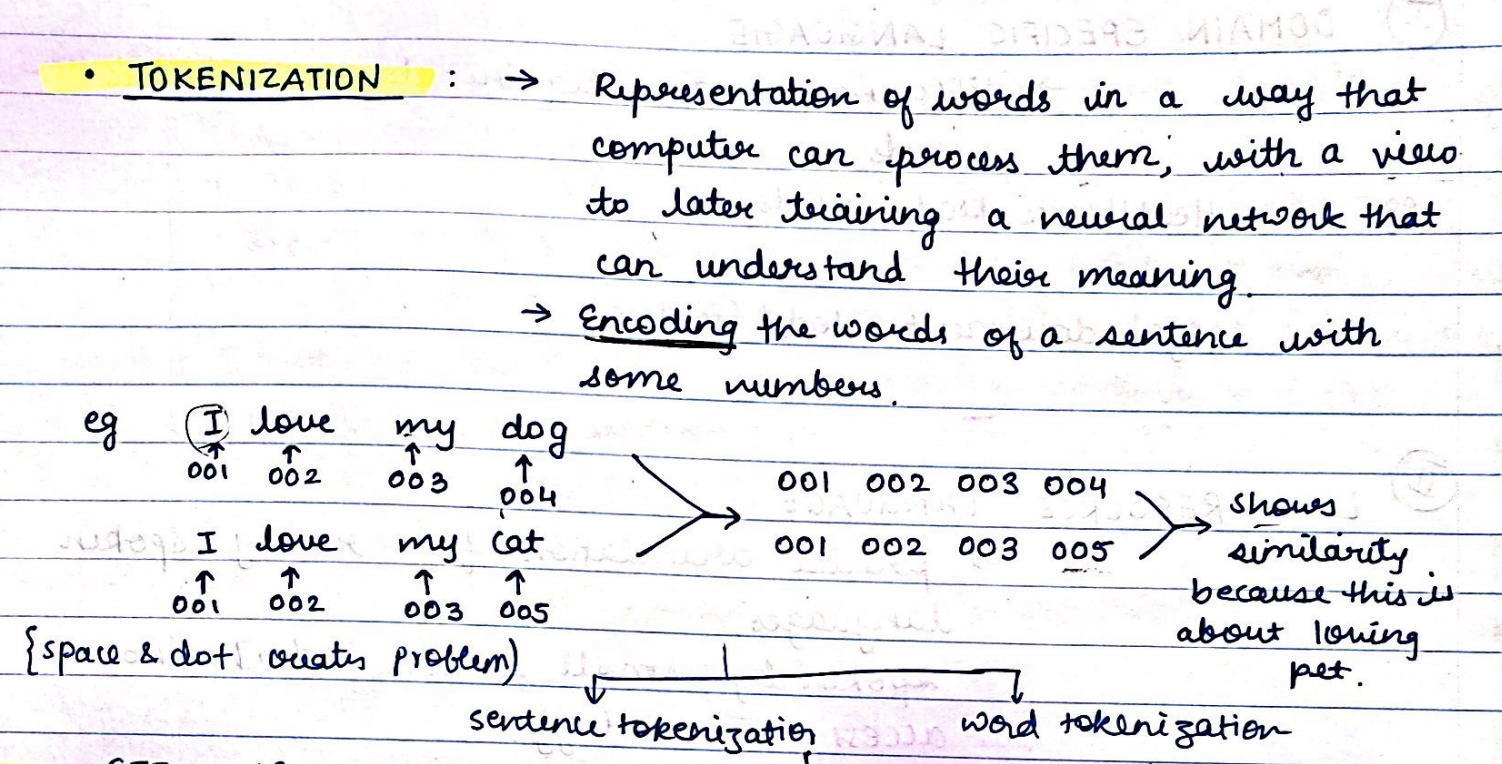 • TOKENIZATION : → Representation of words in a way that
computer can process them, with a view
to later training a neural network that
can understand their meaning.
→ Encoding the words of a sentence with
some numbers.
eg I love my dog
001 002 003 004
I love my cat
001 002 003 005
001 002 003 004
001 002 003 005
shows
similarity
because this is
about loving
pet.
{space & dot creates problem)
sentence tokenization word tokenization